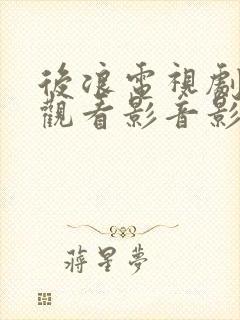 後浪電視劇
觀看影音影
蔣星夢